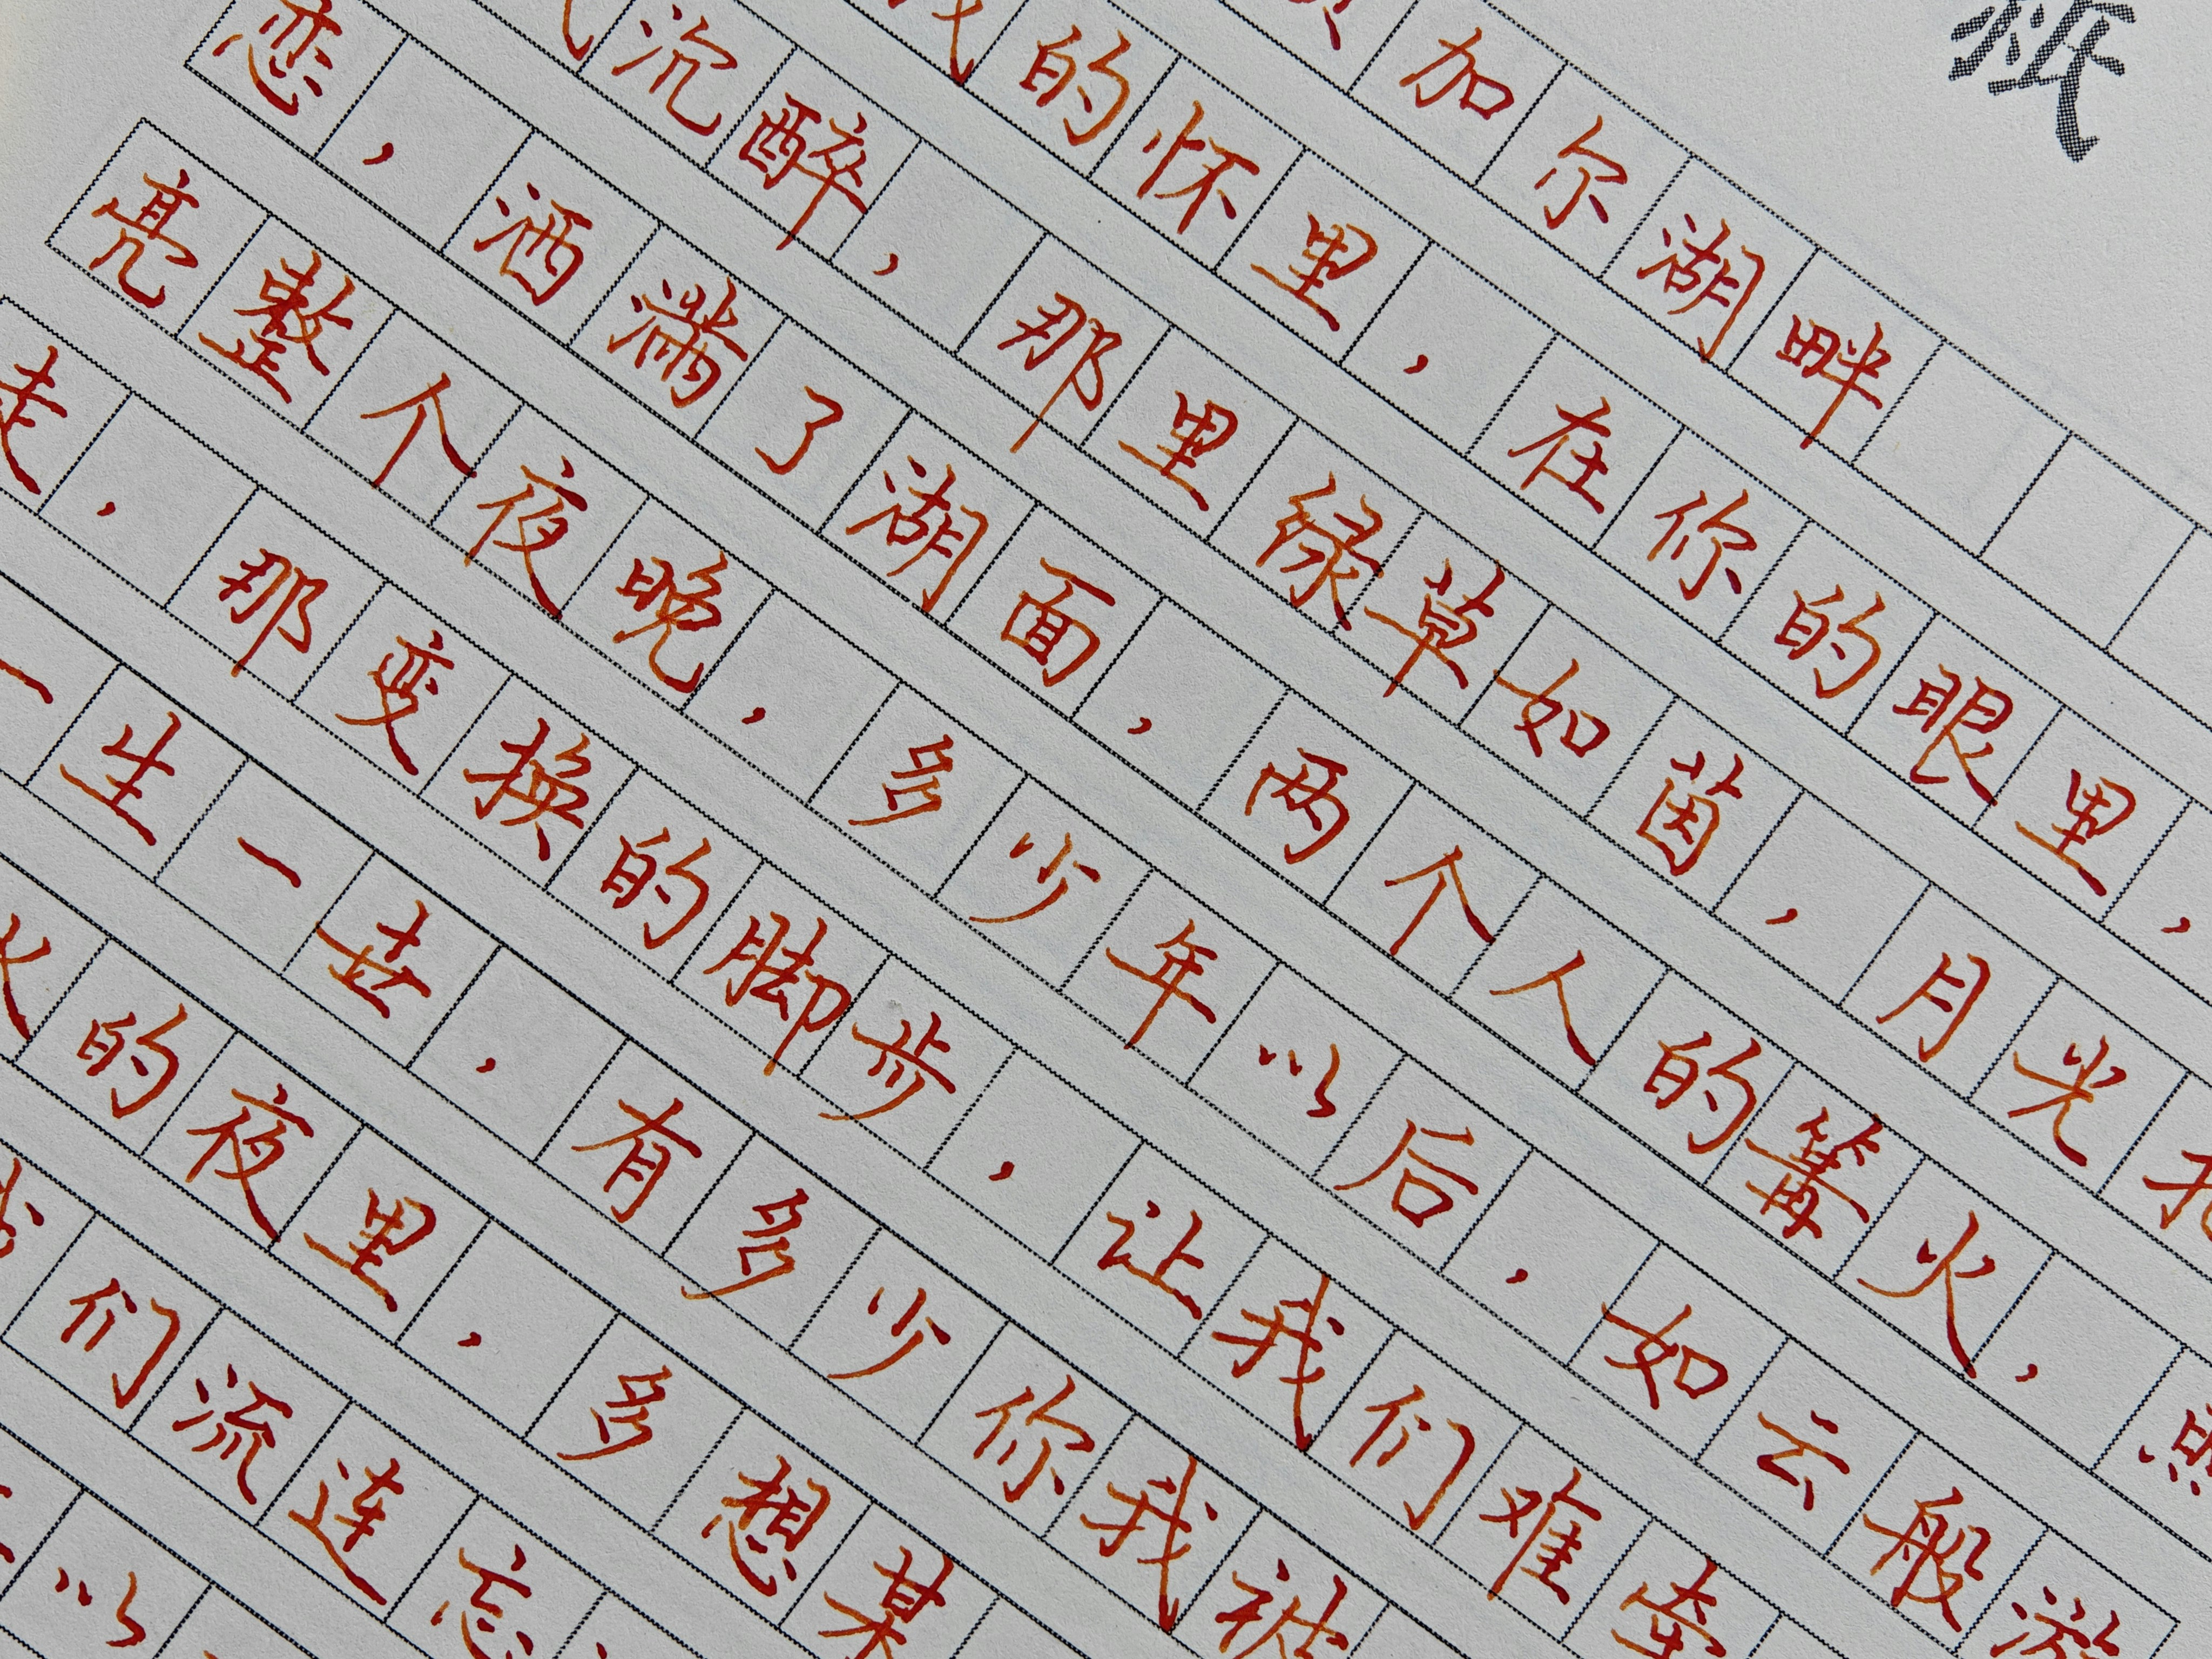 纸
加尔湖畔
我的怀里，在你的眼里，
沉醉，那里绿草如茵，月光
恋，洒满了湖面，两个人的篝火，照
亮整个夜晚，多少年以后，如云般游
走，那变换的脚步，让我们难牵
一生一世，有多少你我被
火的夜里，多想某
们流连忘
以